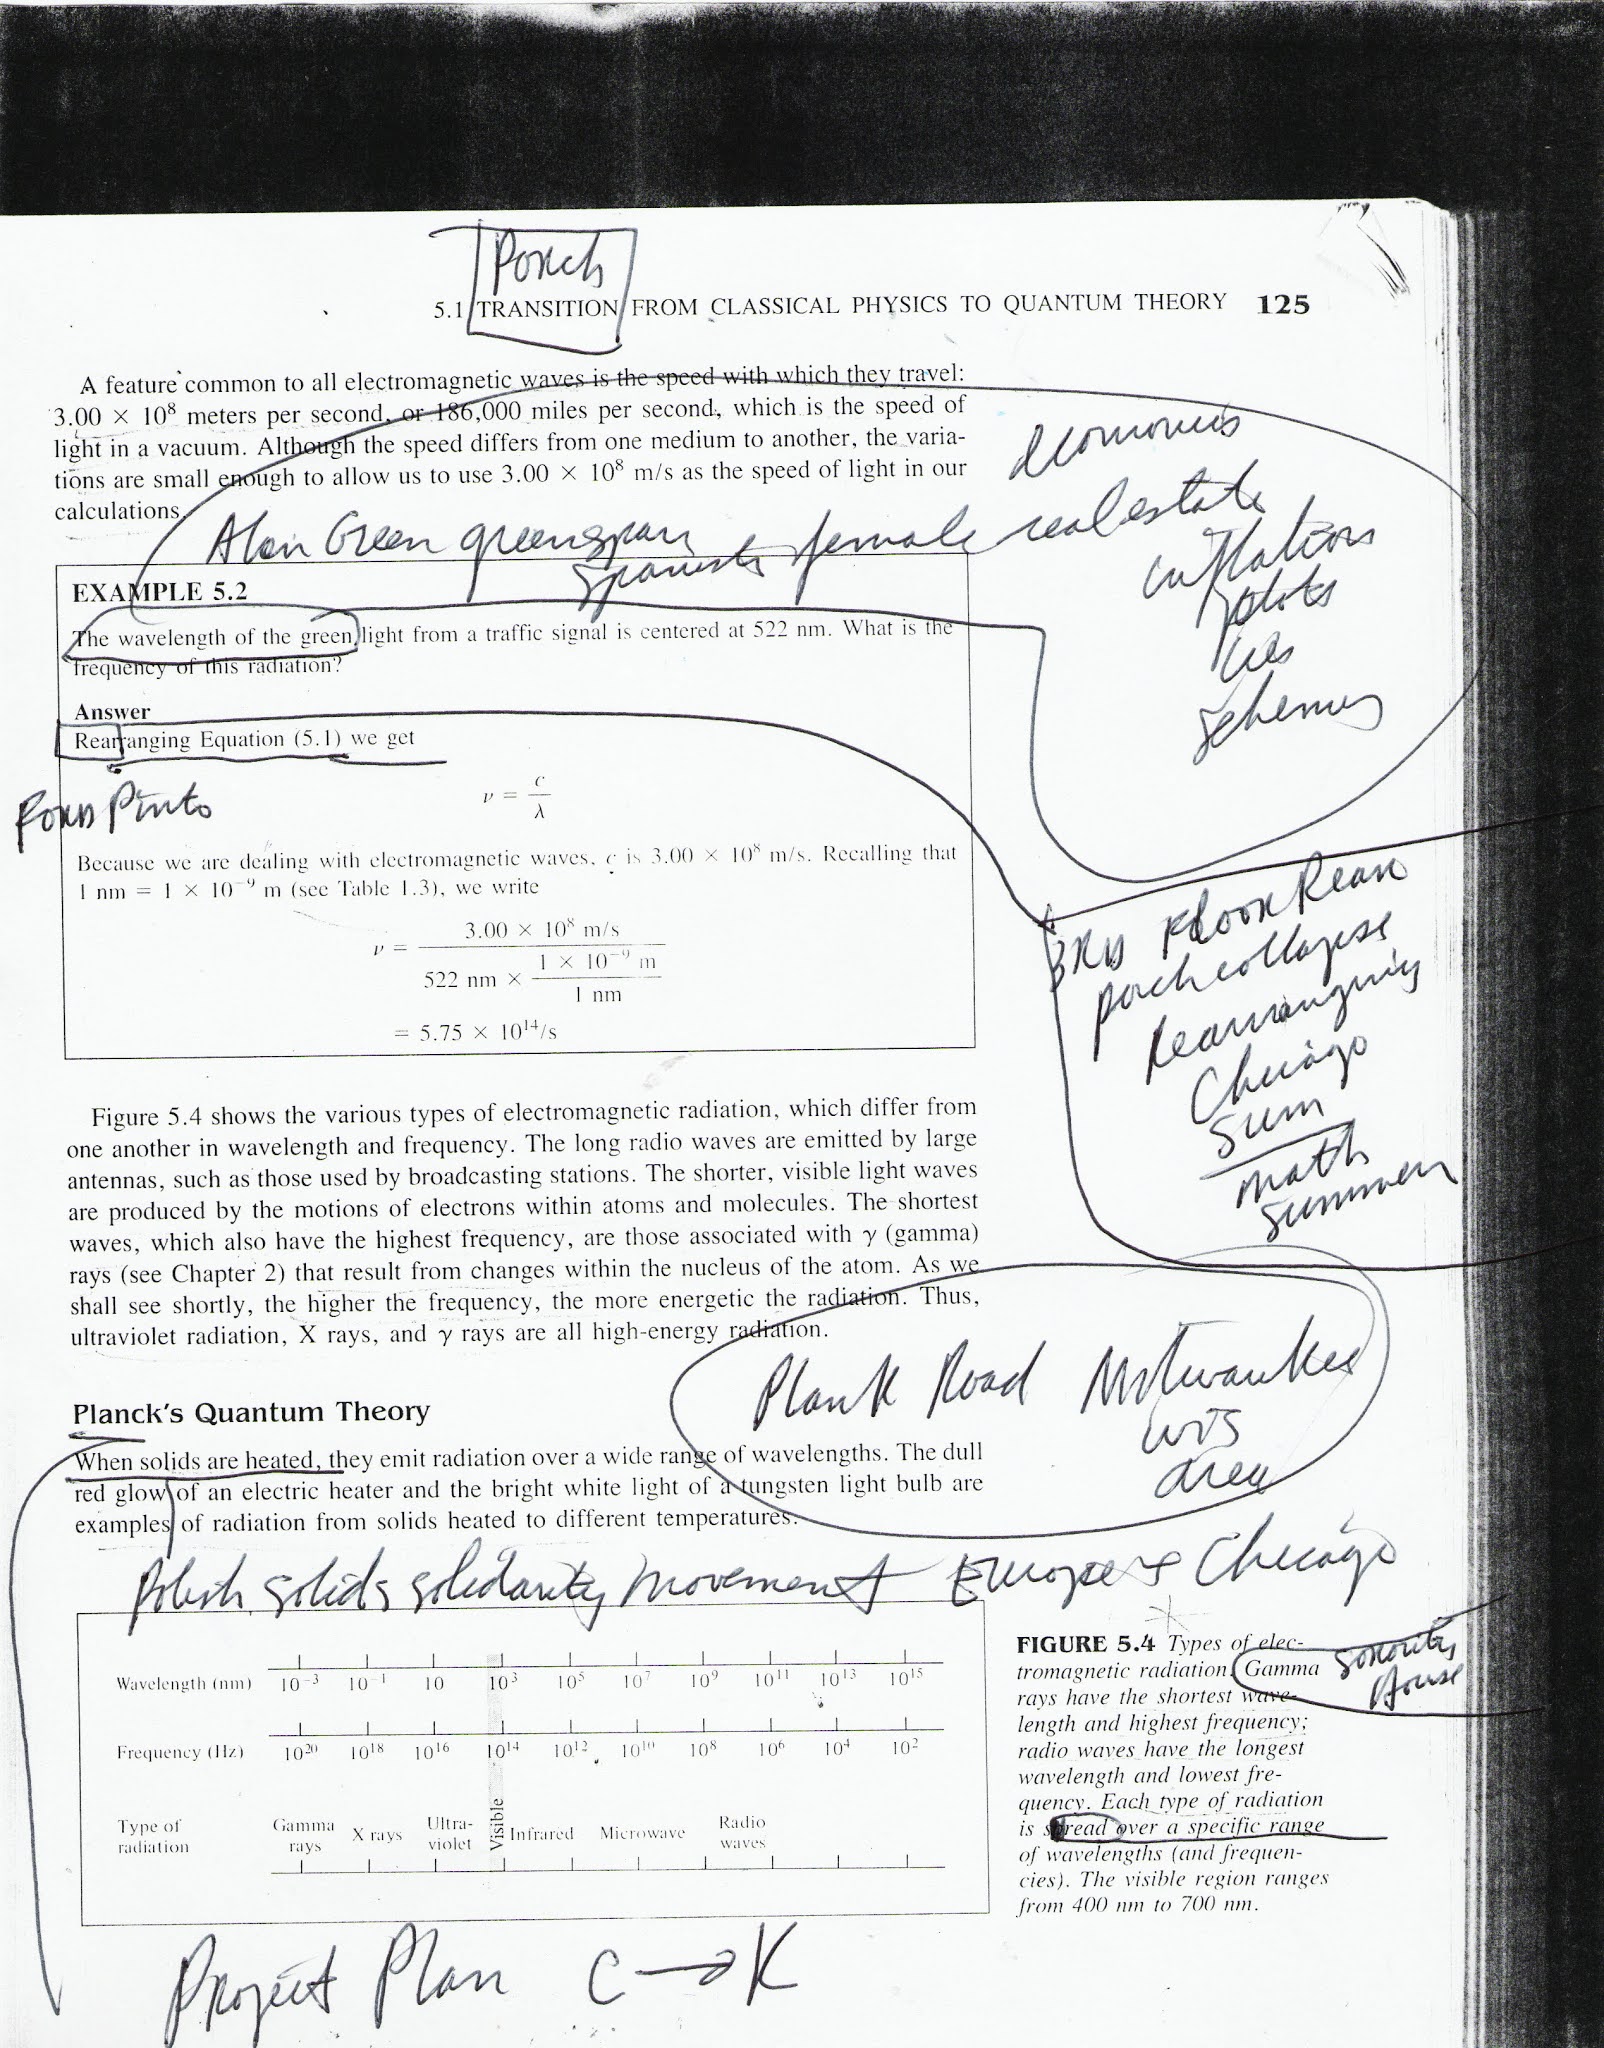 Porch
5.1 TRANSITION FROM CLASSICAL PHYSICS TO QUANTUM THEORY 125
A feature common to all electromagnetic waves is the speed with which they travel:
3.00 × 10⁸ meters per second, or 186,000 miles per second, which is the speed of
light in a vacuum. Although the speed differs from one medium to another, the varia-
tions are small enough to allow us to use 3.00 × 10⁸ m/s as the speed of light in our
calculations.
economics
Alan Green greenspan
Spanish female real estate
inflation
plots
lies
schemes
EXAMPLE 5.2
The wavelength of the green light from a traffic signal is centered at 522 nm. What is the
frequency of this radiation?
Answer
Rearranging Equation (5.1) we get
Ford Pinto
ν = c/λ
Because we are dealing with electromagnetic waves, c is 3.00 × 10⁸ m/s. Recalling that
1 nm = 1 × 10⁻⁹ m (see Table 1.3), we write
3.00 × 10⁸ m/s
ν =
522 nm × 1 × 10⁻⁹ m
1 nm
= 5.75 × 10¹⁴/s
3RD Floor Rear
porch collapse
rearranging
Chicago
sum
math
summer
Figure 5.4 shows the various types of electromagnetic radiation, which differ from
one another in wavelength and frequency. The long radio waves are emitted by large
antennas, such as those used by broadcasting stations. The shorter, visible light waves
are produced by the motions of electrons within atoms and molecules. The shortest
waves, which also have the highest frequency, are those associated with γ (gamma)
rays (see Chapter 2) that result from changes within the nucleus of the atom. As we
shall see shortly, the higher the frequency, the more energetic the radiation. Thus,
ultraviolet radiation, X rays, and γ rays are all high-energy radiation.
Plank Road Milwaukee
WIS
area
Planck's Quantum Theory
When solids are heated, they emit radiation over a wide range of wavelengths. The dull
red glow of an electric heater and the bright white light of a tungsten light bulb are
examples of radiation from solids heated to different temperatures.
Polish solids solidarity movement Europe + Chicago
Wavelength (nm) 10⁻³ 10⁻¹ 10 10³ 10⁵ 10⁷ 10⁹ 10¹¹ 10¹³ 10¹⁵
Frequency (Hz) 10²⁰ 10¹⁸ 10¹⁶ 10¹⁴ 10¹² 10¹⁰ 10⁸ 10⁶ 10⁴ 10²
Type of radiation Gamma rays X rays Ultra-violet Visible Infrared Microwave Radio waves
FIGURE 5.4 Types of elec-
tromagnetic radiation. Gamma
rays have the shortest wave-
length and highest frequency;
radio waves have the longest
wavelength and lowest fre-
quency. Each type of radiation
is spread over a specific range
of wavelengths (and frequen-
cies). The visible region ranges
from 400 nm to 700 nm.
sorority
House
Project Plan C → K